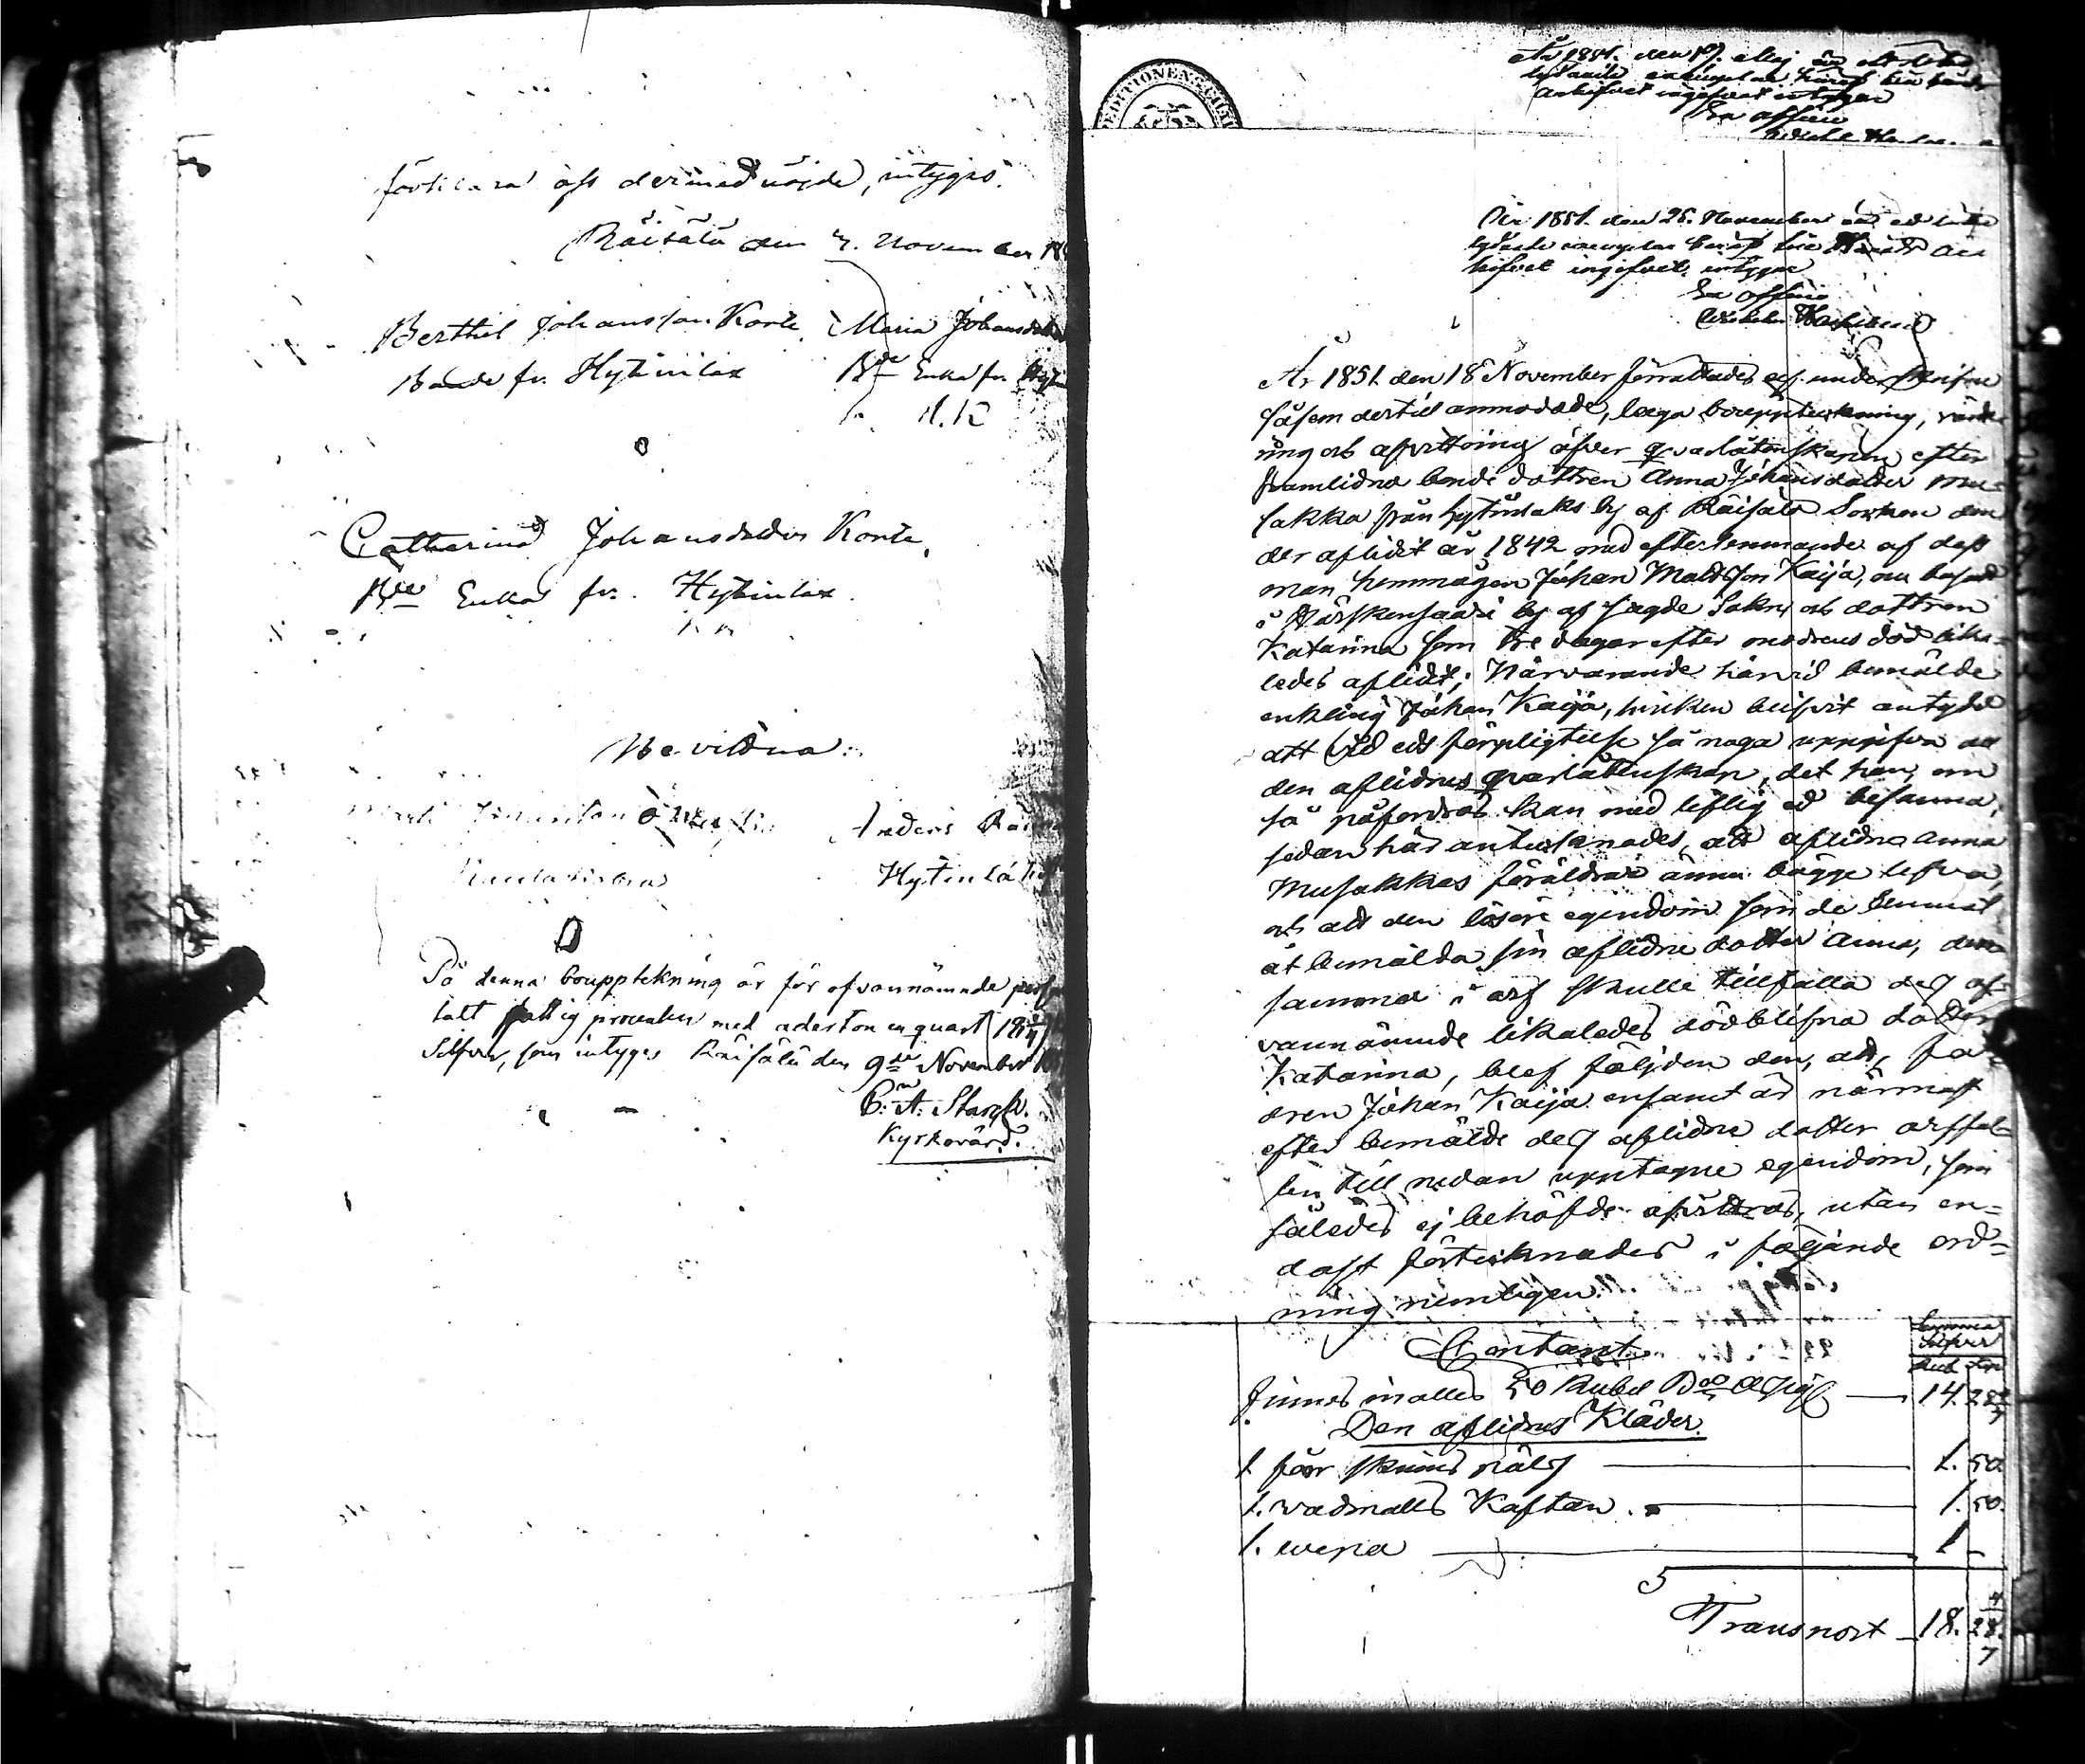 förklara oss dermed nöjde, intygas.
Räisälä den 7. November 18
Berthil Johansson Korte, Maria Johansdotter
Bonde fr. Hytinlax Bde Enka fr. Hytin
Catharina Johansdotter Korte,
Bde Enka fr. Hytinlax.
Bevittna:
Anders
Hytinlax
På denna bouppteckning är för ofvannämnde
talt fattig procenten med aderton en quart (18 1/4)
Silfver, som intyges Räisälä den 9de November
C: A: Starck.
Kyrkovärd.
EDITIONENS
År 1851. den 19. Maj är ett lika
lydande exemplar häraf
arkifvet ingifvet intygar
Ex officio
År 1851. den 25. November är ett lika
lydande exemplar häraf till Härads ar
kifvet ingifvet, intygar
Ex officio
År 1851 den 18 November förrättades af undertecknade
såsom dertill anmodade, laga bouppteckning, värde
ring och afvittring öfver qvarlåtenskapen efter
framlidna bonde dottren Anna Johansdotter Mu
sakka från Hytinlaks by af Räisälä Socken den
der aflidit år 1842 med efterlemnande af dess
man hemmågen Johan Mattsson Kaija, nu bosatt
i Särskensaari by af sagde Sokn och dottren
Katarina som tre dagar efter modrens död lika-
ledes aflidit; Närvarande härvid bemälde
enkling Johan Kaija, hvilken blifvit antydd
att vid eds förpligtelse så noga uppgifva all
den aflidnes qvarlåtenskap, det han, om
så påfordras kan med liflig ed besanna,
sedan här antecknades, att aflidna Anna
Musakkas föräldrar ännu bägge lefva,
och att den lösöre egendom som de lemnat
åt bemälda sin aflidne dotter Anna, den
samma i arf skulle tillfalla dess of
vannämnde likaledes dödblifna dotter
Katarina, blef följden den, att, fa
dren Johan Kaija ensamt är närmast
efter bemälde dess aflidne dotter arffal-
len till nedan upptagne egendom, som
således ej behöfde afvittras, utan en-
dast förtecknades i följande ord-
ning nemligen:
Summa
Silfver
Rub. Kop
Contant.
Finnes in alles 50 Rubel Bco Assig 14. 28 4/7
Den aflidnes Kläder.
1 fårskinns päls 1. 50.
1. vadmalls Kaftan. 1. 50.
1. 1 –
Transport 18. 28 4/7